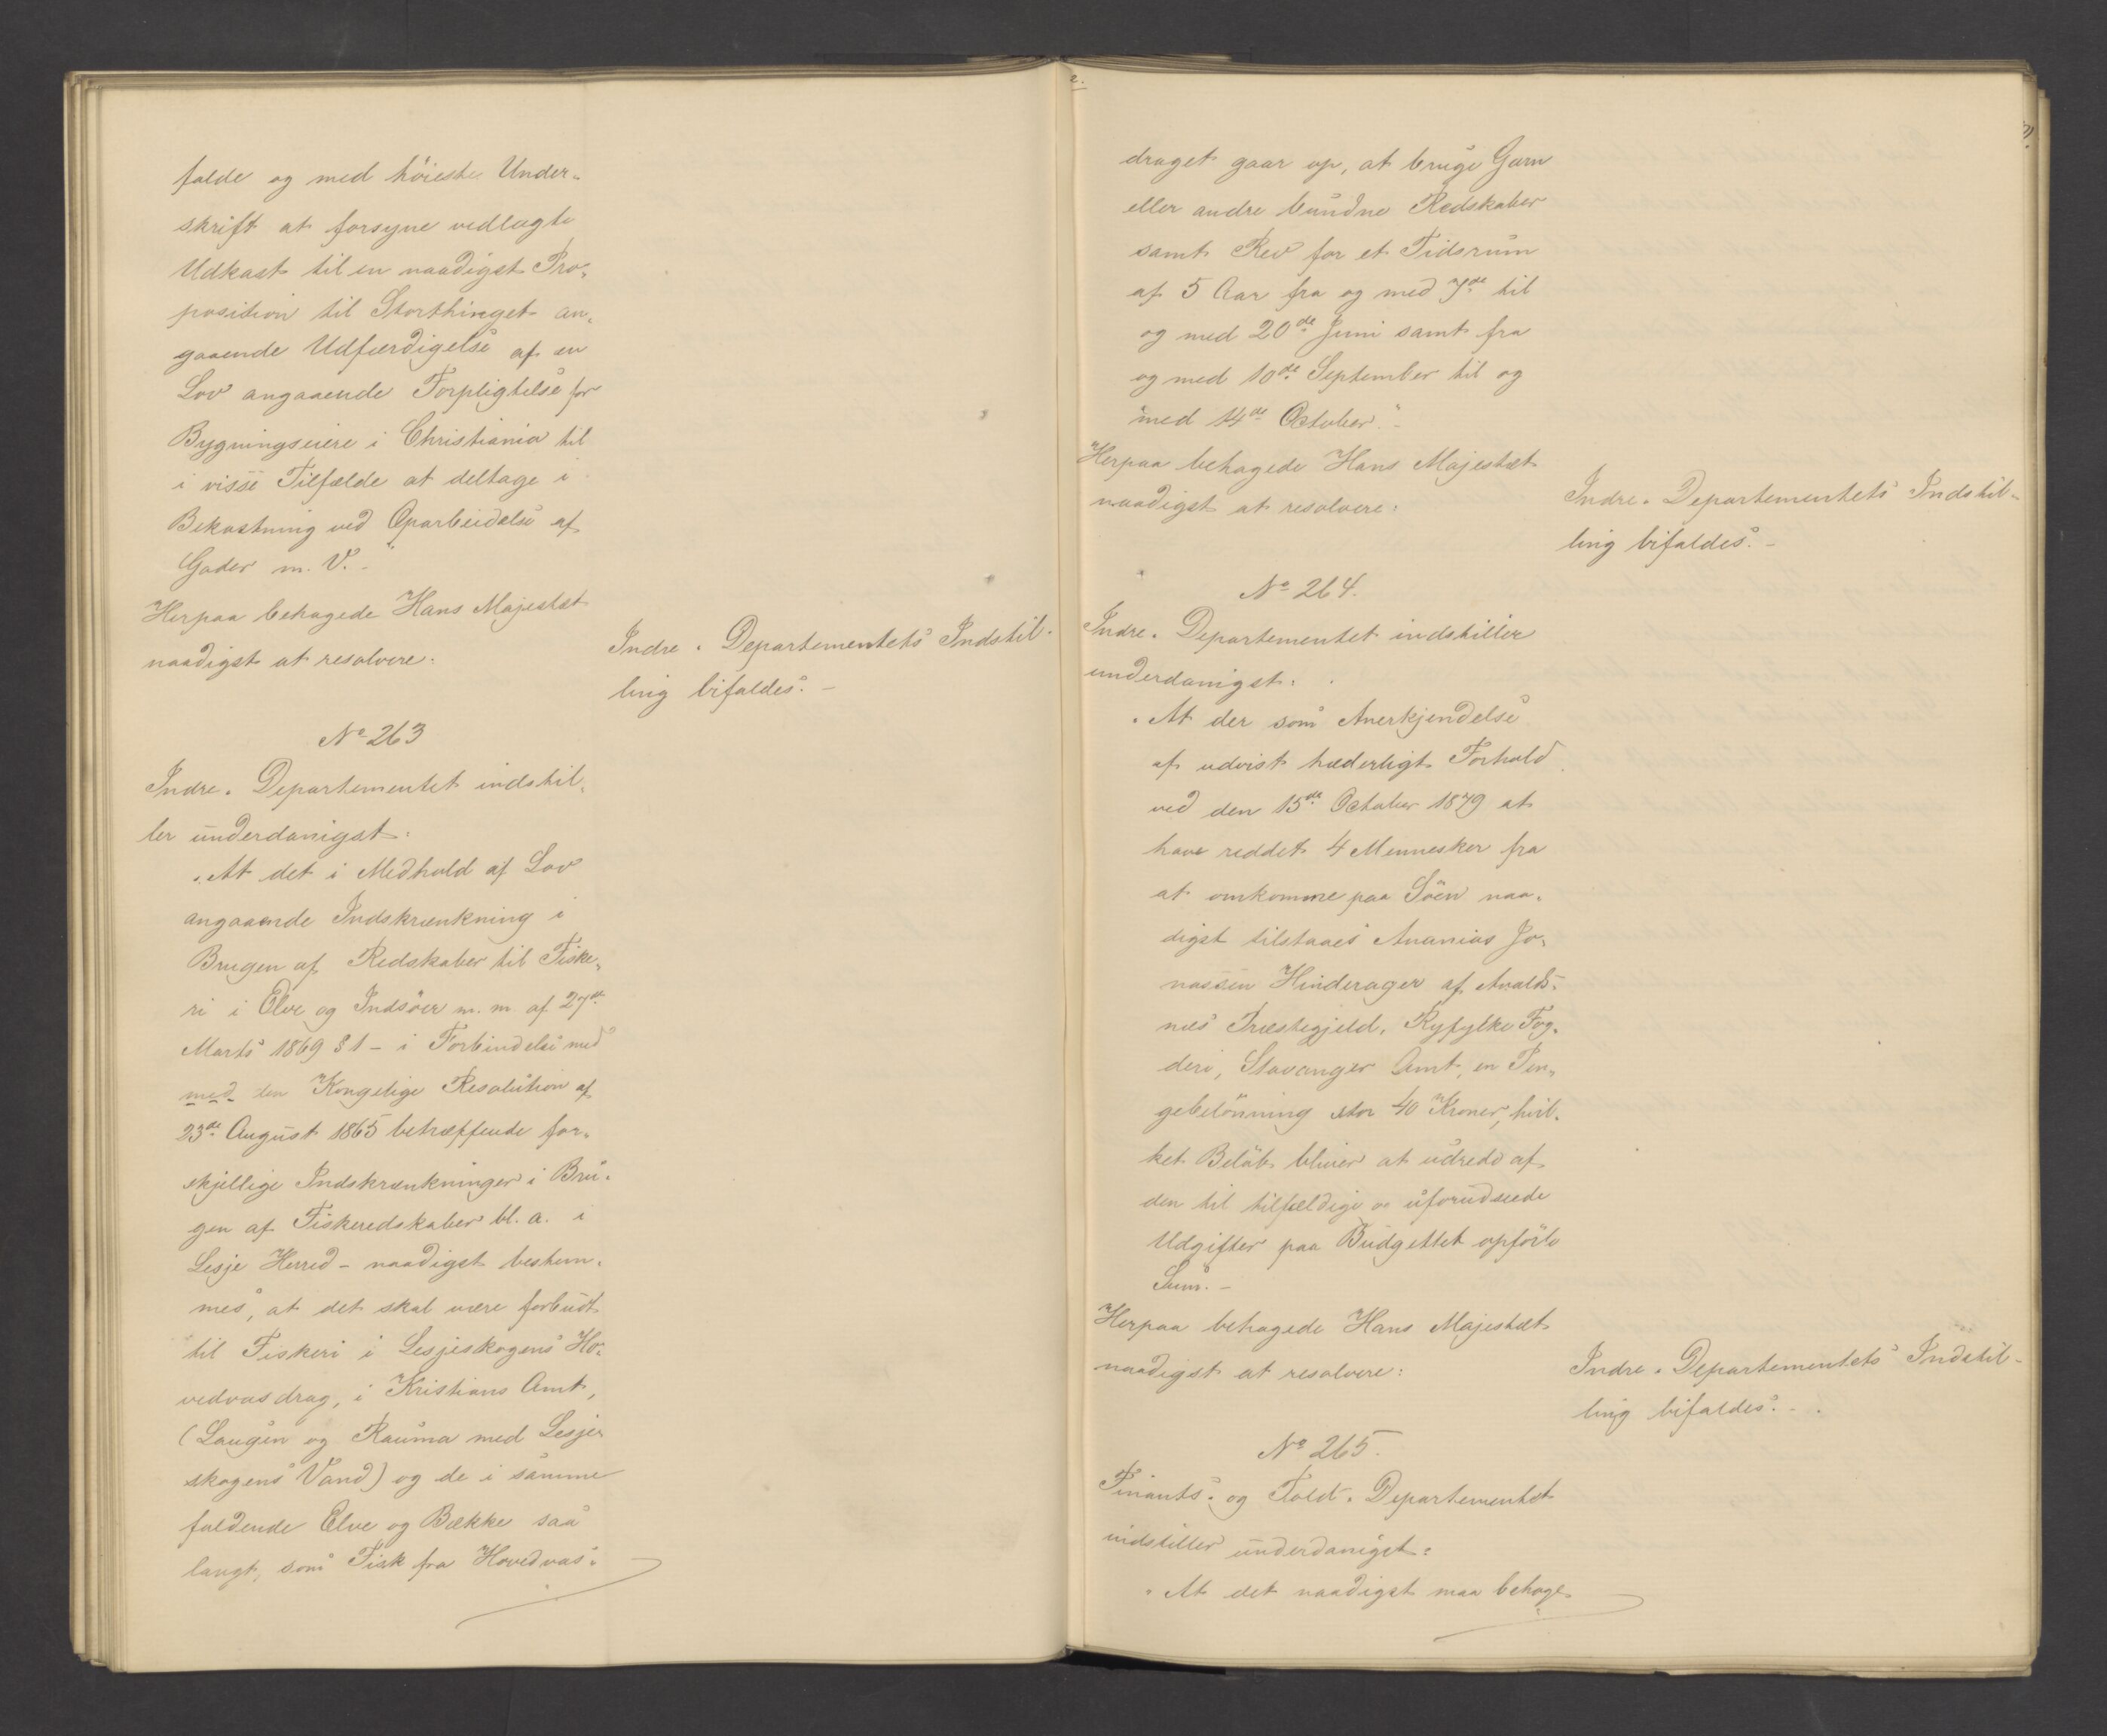 falde og med höieste Under-
skrift at forsyne vedlagte
Udkast til en naadigst Pro-
position til Storthinget an-
gaaende Udfærdigelse af en
Lov angaaende Forpligtelse for
Bygningseiere i Christiania til
i visse Tilfælde at deltage i
Bekostning ved Oparbeidelse af
Gader m. V."-
Herpaa behagede Hans Majestæt
naadigst at resolvere:
Indre-Departementets Indstil-
ling bifaldes.-
No 263
Indre-Departementet indstil-
ler underdanigst:
"At det i Medhold af Lov
angaaende Indskrænkning i
Brugen af Redskaber til Fiske-
ri i Elve og Indsöer m. m. af 27de
Marts 1869 § 1 - i Forbindelse med
med den Kongelige Resolution af
23de August 1865 betræffende for-
skjellige Indskrænkninger i Bru-
gen af Fiskeredskaber bl. a. i
Lesje Herred - naadigst bestem-
mes, at det skal være forbudt
til Fiskeri i Lesjeskogens Ho-
vedvasdrag, i Kristians Amt,
(Laugen og Rauma med Lesje-
skogens Vand) og de i samme
faldende Elve og Bække saa
langt, som Fisk fra Hovedvas-
2.
draget gaar op, at bruge Garn
eller andre bundne Redskaber
samt Rev for et Tidsrum
af 5 Aar fra og med 7de til
og med 20de Juni samt fra
og med 10de September til og
med 14de October."-
Herpaa behagede Hans Majestæt
naadigst at resolvere:
Indre-Departementets Indstil-
ling bifaldes.-
No 264.
Indre-Departementet indstiller
underdanigst:
"At der som Anerkjendelse
af udvist hæderligt Forhold
ved den 15de October 1879 at
have reddet 4 Mennesker fra
at omkomme paa Söen naa-
digst tilstaaes Ananias Jo-
nassen Hinderager af Avalds-
næs Præstegjeld, Ryfylke Fog-
deri, Stavanger Amt, en Pen-
gebelönning stor 40 Kroner, hvil-
ket Belöb bliver at udrede af
den til tilfældige og uforudseede
Udgifter paa Budgettet opförte
Sum.-
Herpaa behagede Hans Majestæt
naadigst at resolvere:
Indre-Departementets Indstil-
ling bifaldes.-
No 265.
Finants- og Told-Departementet
indstiller underdanigst:
"At det naadigst maa behage